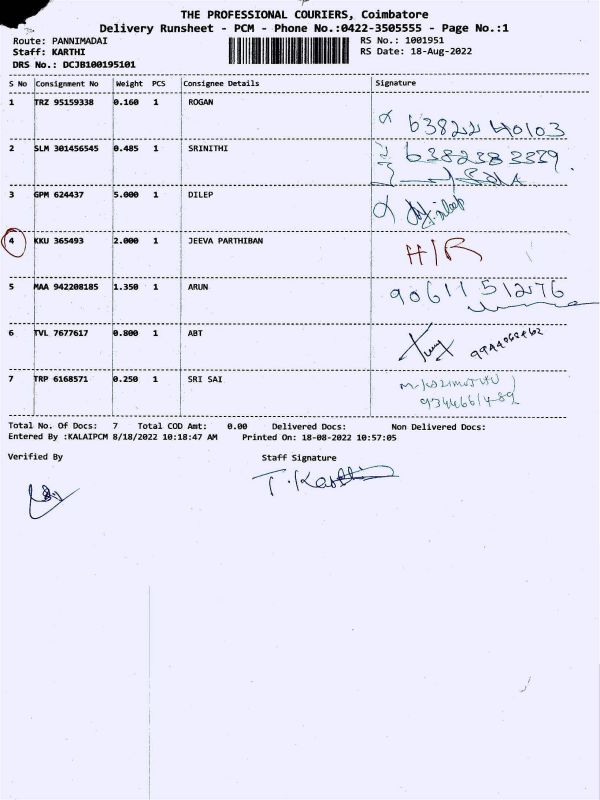 THE PROFESSIONAL COURIERS, Coimbatore
Delivery Runsheet - PCM - Phone No.:0422-3505555 - Page No.:1
Route: PANNIMADAI
Staff: KARTHI
DRS No.: DCJB100195101
RS No.: 1001951
RS Date: 18-Aug-2022
S No Consignment No Weight PCS Consignee Details Signature
1 TRZ 95159338 0.160 1 ROGAN
63822 40103
2 SLM 301456545 0.485 1 SRINITHI
6382383339
3 GPM 624437 5.000 1 DILEP
4 KKU 365493 2.000 1 JEEVA PARTHIBAN
H/R
5 MAA 942208185 1.350 1 ARUN
90611 51276
6 TVL 7677617 0.800 1 ABT
7 TRP 6168571 0.250 1 SRI SAI
Total No. Of Docs: 7 Total COD Amt: 0.00 Delivered Docs: Non Delivered Docs:
Entered By :KALAIPCM 8/18/2022 10:18:47 AM Printed On: 18-08-2022 10:57:05
Verified By Staff Signature
T. Karthi